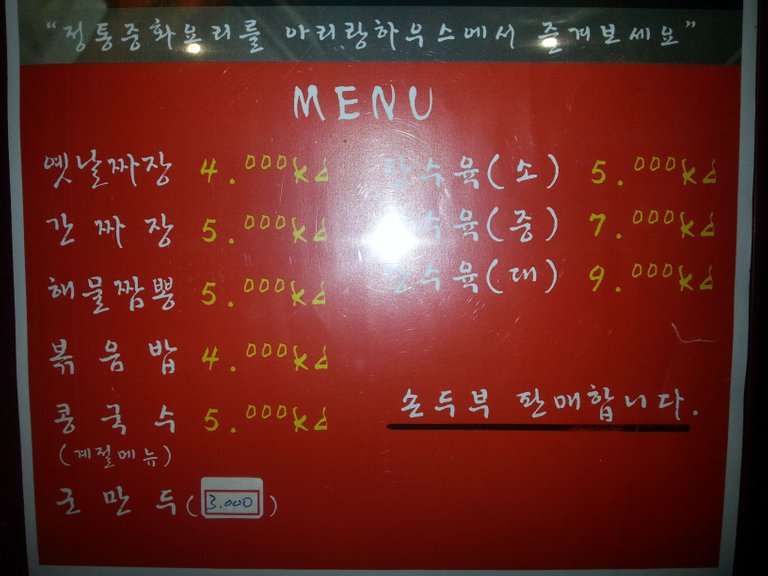 “정통중화요리를 아리랑하우스에서 즐겨보세요”
MENU
옛날짜장 4.000Kd
간짜장 5.000Kd
해물짬뽕 5.000Kd
볶음밥 4.000Kd
콩국수 5.000Kd
(계절메뉴)
군만두(3.000)
탕수육(소) 5.000Kd
탕수육(중) 7.000Kd
탕수육(대) 9.000Kd
손두부 판매합니다.